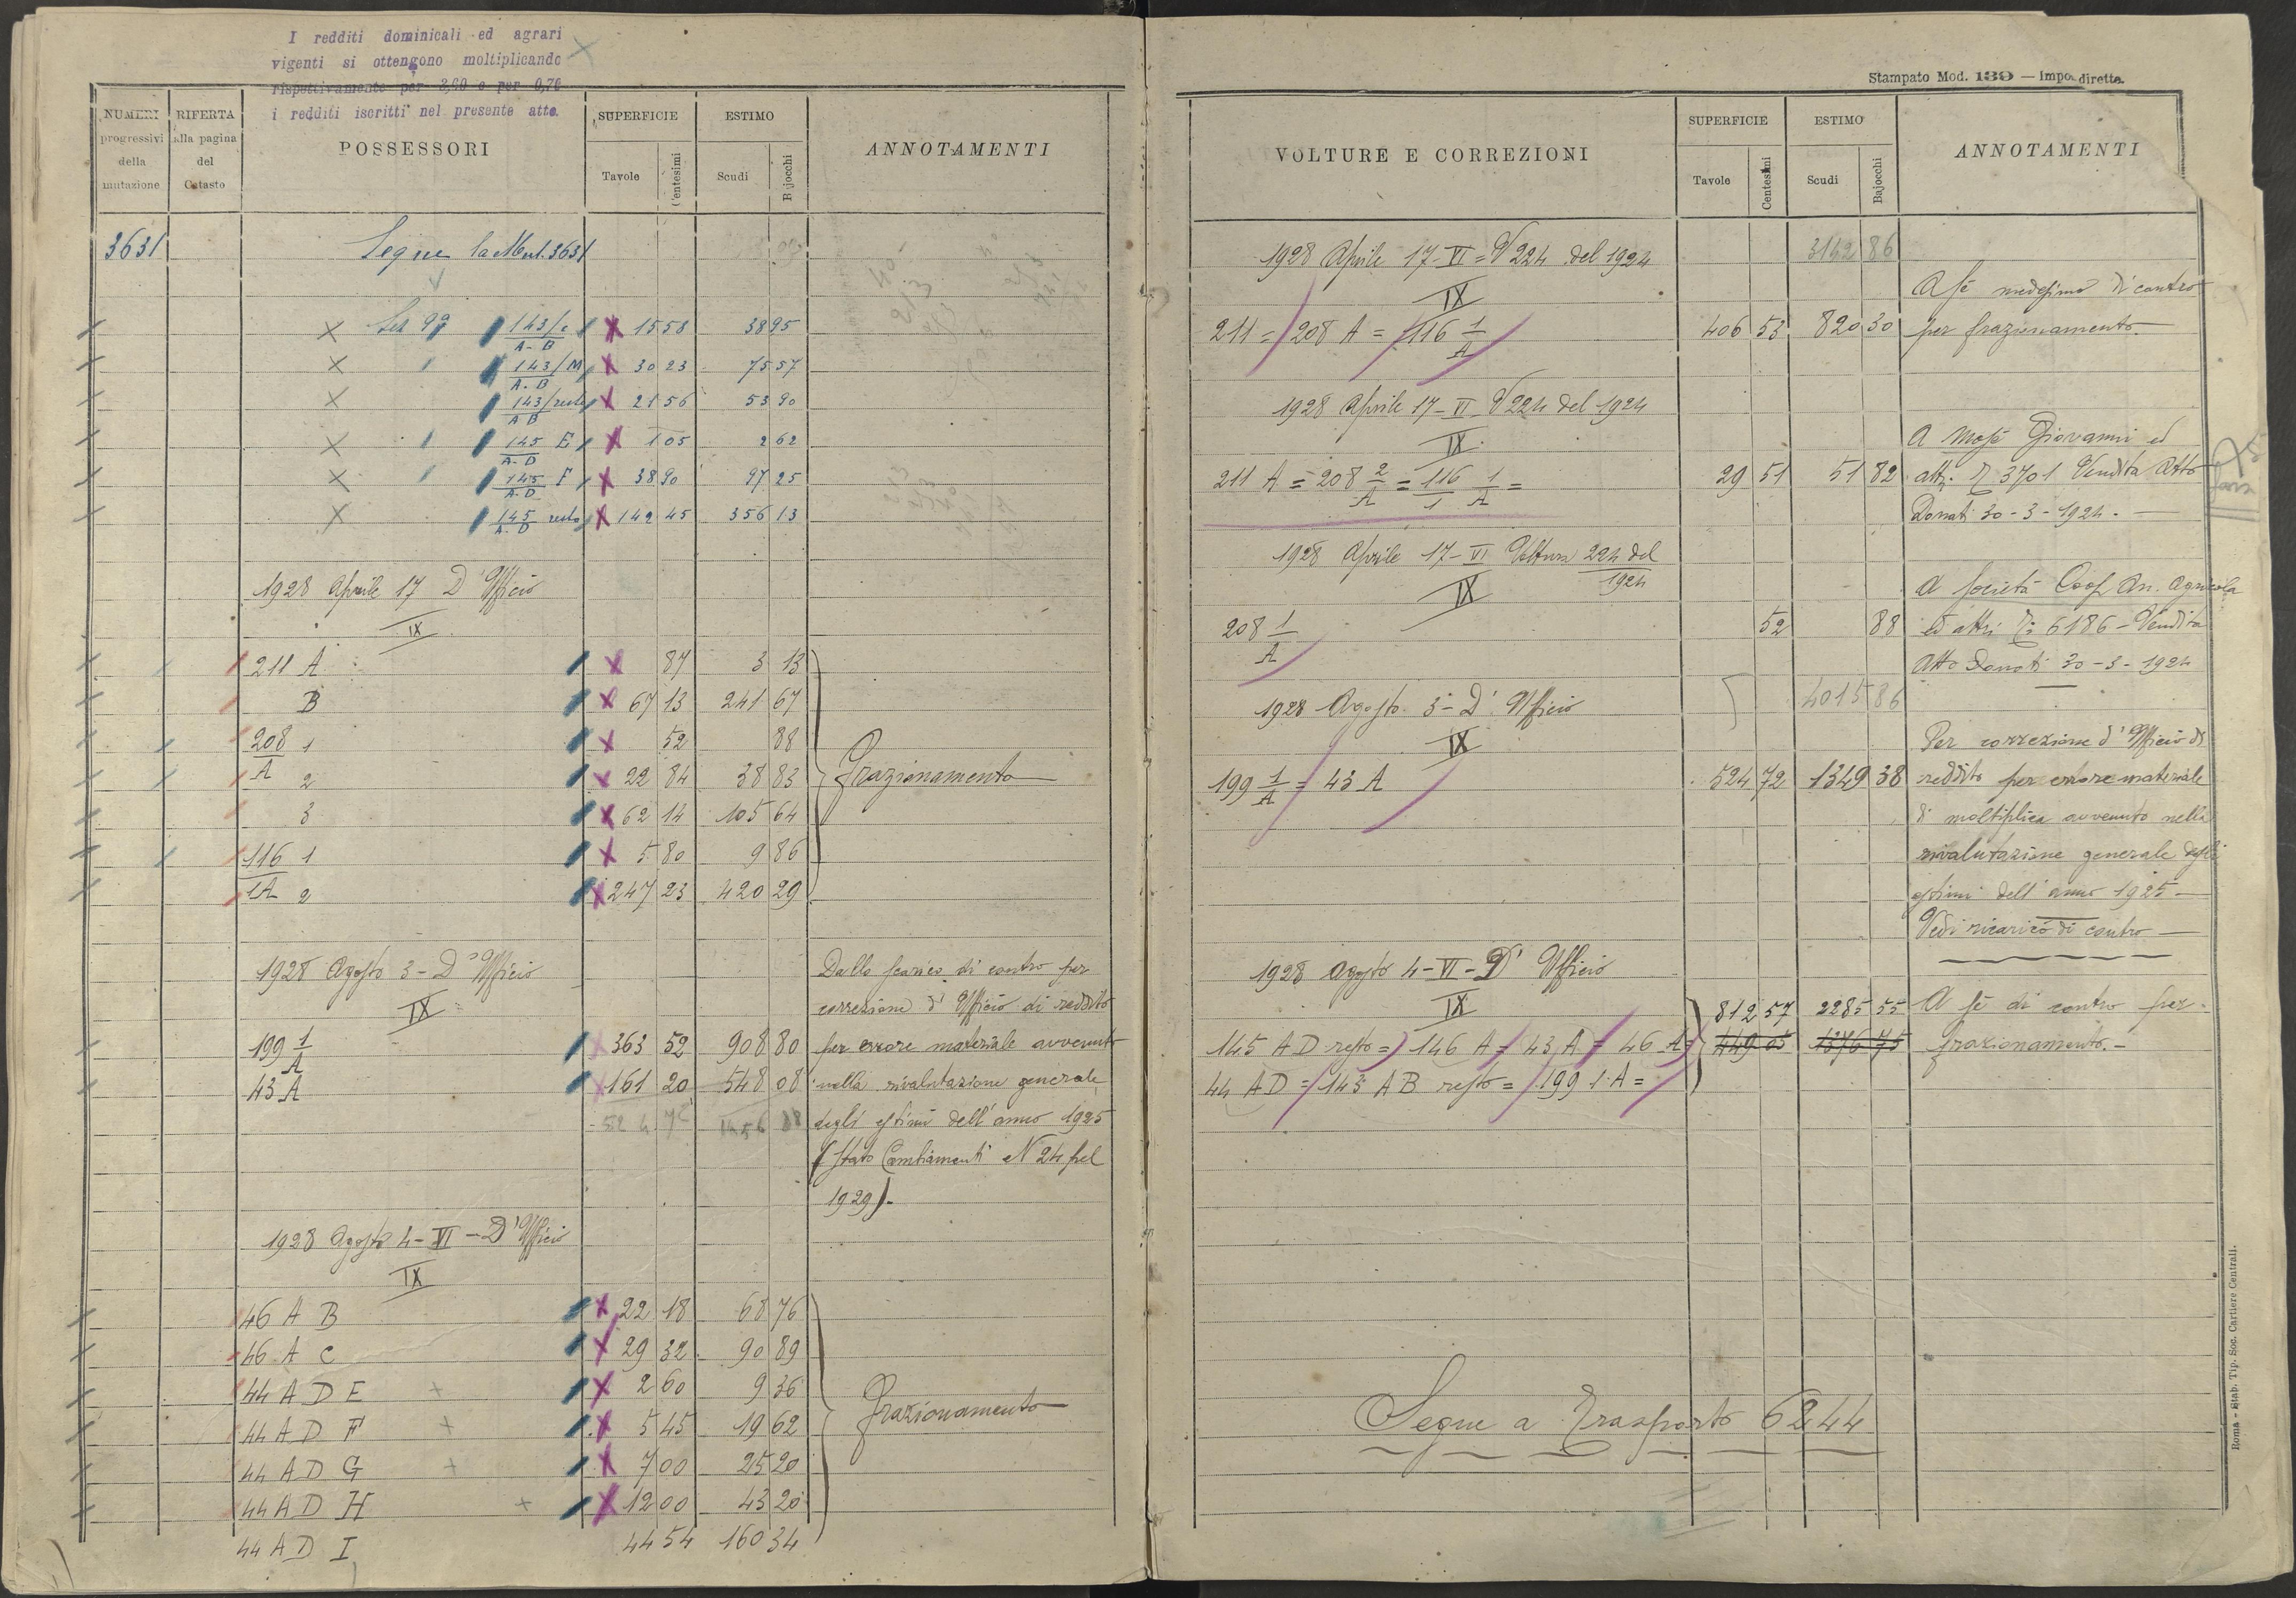 I redditi dominicali ed agrari
vigenti si ottengono moltiplicando
rispettivamente per 3,60 e per 0,70
i redditi iscritti nel presente atto.
NUMERI progressivi della mutazione
RIFERTA alla pagina del Catasto
POSSESSORI
SUPERFICIE
Tavole
Centesimi
ESTIMO
Scudi
Bajocchi
ANNOTAMENTI
3631 Segue la Mut. 3631
143/e A-B 15 58 38 95
143/M A-B 30 23 75 57
143/resto A B 21 56 53 90
145 E A-D 1 05 2 62
145 F A-D 38 90 97 25
145 resto A-D 142 45 356 13
1928 Aprile 17 D'Ufficio
IX
211 A 87 3 13
B 67 13 241 67
208/A 1 52 88
2 22 84 38 83 Frazionamento
3 62 14 105 64
116/1A 1 5 80 9 86
2 247 23 420 29
1928 Agosto 3 - D'Ufficio
IX
Dallo scarico di contro per
correzione d'Ufficio di reddito
199 1/A 363 52 908 80 per errore materiale avvenuto
43 A 161 20 548 08 nella rivalutazione generale
524 72 1456 88 degli estimi dell'anno 1925
(Stato Cambiamenti N 24 pel
1929).
1928 Agosto 4 - VI - D'Ufficio
IX
46 A B 22 18 68 76
46 A C 29 32 90 89
44 A D E 2 60 9 36
44 A D F 5 45 19 62 Frazionamento
44 A D G 7 00 25 20
44 A D H 12 00 43 20
44 A D I 44 54 160 34
Stampato Mod. 139 — Impo. dirette.
VOLTURE E CORREZIONI
SUPERFICIE
Tavole
Centesimi
ESTIMO
Scudi
Bajocchi
ANNOTAMENTI
1928 Aprile 17 - VI = V 224 del 1924 3142 86
IX
A sé medesimo di contro
211 = 208 A = 116 1/A 406 53 820 30 per frazionamento.
1928 Aprile 17 - VI V 224 del 1924
IX
A Mosè Giovanni ed
211 A = 208 2/A = 116/1 1/A = 29 51 51 82 altri 3701 Vendita Atto
Donati 30 - 3 - 1924.
1928 Aprile 17 - VI Voltura 224 del 1924
IX
A Società Coop. An. Agricola
208 1/A 52 88 ed altri 6186 - Vendita
Atto Donati 30 - 3 - 1924
1928 Agosto 3 - D'Ufficio 4015 86
IX
Per correzione d'Ufficio di
199 1/A = 43 A 524 72 1349 38 reddito per errore materiale
di moltiplica avvenuto nella
rivalutazione generale degli
estimi dell'anno 1925 —
Vedi ricarico di contro —
1928 Agosto 4 - VI - D'Ufficio
IX 812 57 2285 55 A sé di contro per
145 AD resto = 146 A = 43 A = 46 A = 449 05 1376 75 frazionamento. -
44 AD = 143 AB resto = 199 1 A =
Segue a Trasporto 6244
Roma - Stab. Tip. Soc. Cartiere Centrali.